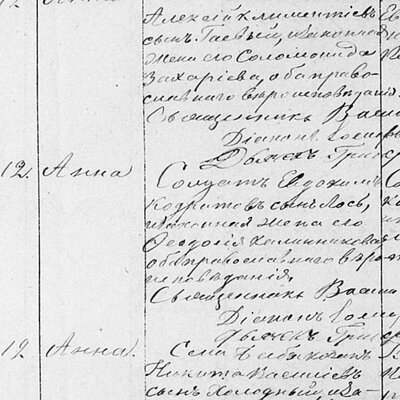 Алексѣй Климентіевъ
сынъ Гаевый, и законная
жена его Соломонида
Захаріева, оба право-
славнаго вѣроисповѣданія.
Священникъ Васи
Діаконъ
Дьячекъ Григ
12. Анна
Солдатъ Евдокимъ
Кодратовъ сынъ Лось,
и законная жена его
Феодосія Калинникова
оба православнаго вѣро-
исповѣданія,
Священникъ Васи
Діаконъ
Дьячекъ Григ
12 Анна.
Села
Никита Василіевъ
сынъ Холодный, и за-